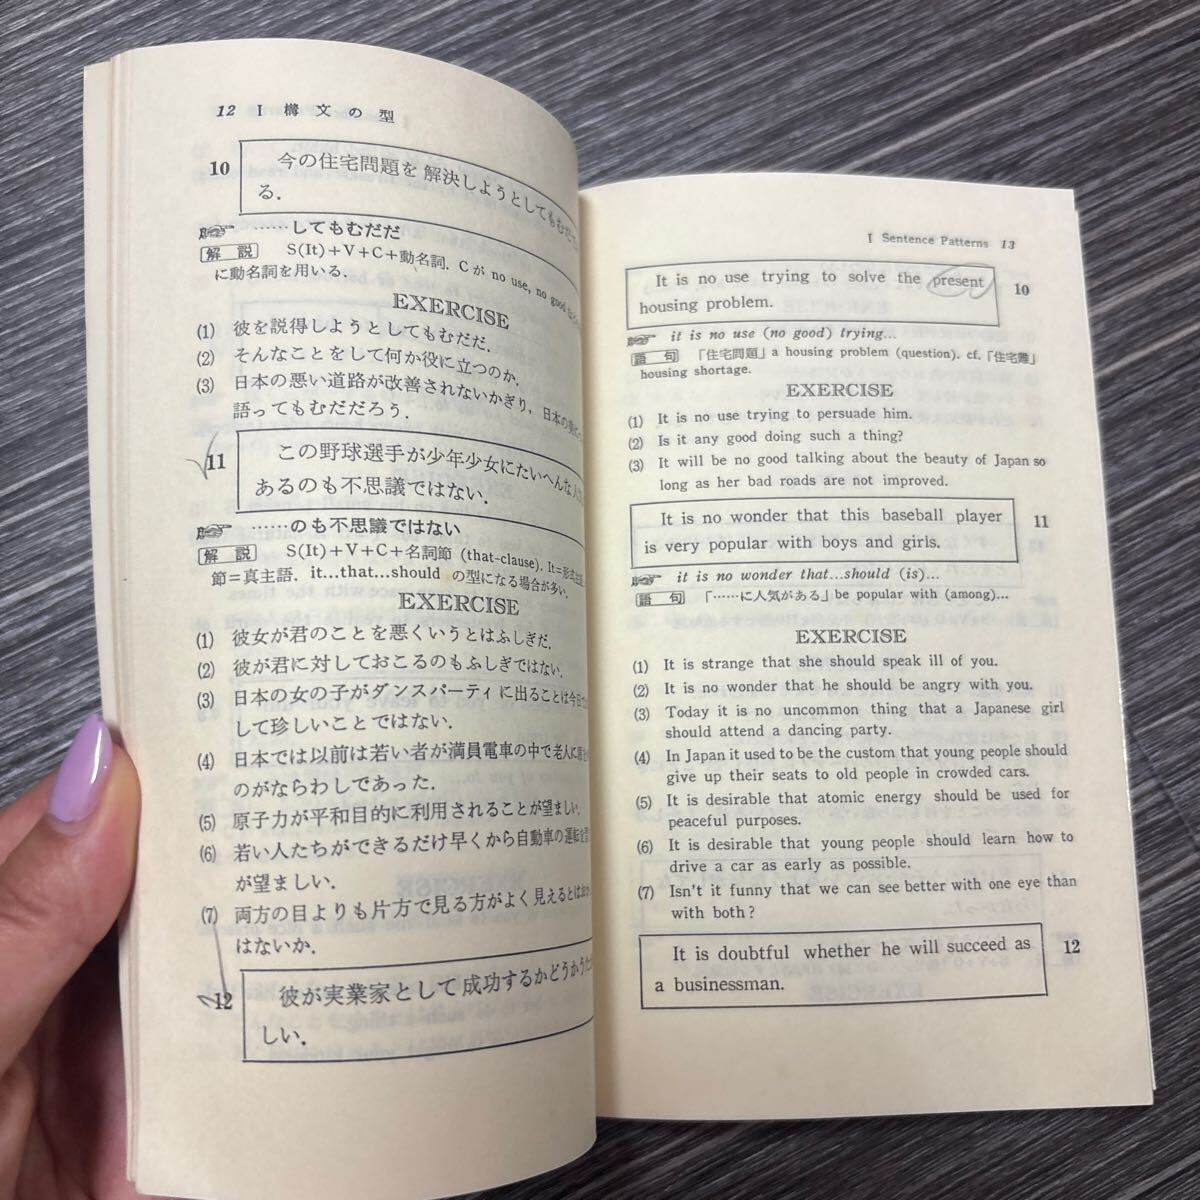 12 I 構文の型
10 今の住宅問題を解決しようとしてもむだで
る.
……してもむだだ
解説 S(It)+V+C+動名詞. C が no use, no good
に動名詞を用いる.
EXERCISE
(1) 彼を説得しようとしてもむだだ.
(2) そんなことをして何か役に立つのか.
(3) 日本の悪い道路が改善されないかぎり, 日本の
語ってもむだだろう.
11 この野球選手が少年少女にたいへんな人
あるのも不思議ではない.
……のも不思議ではない
解説 S(It)+V+C+名詞節 (that-clause). It=形式主
節=真主語. it…that…should の型になる場合が多い.
EXERCISE
(1) 彼女が君のことを悪くいうとはふしぎだ.
(2) 彼が君に対しておこるのもふしぎではない.
(3) 日本の女の子がダンスパーティに出ることは今日
して珍しいことではない.
(4) 日本では以前は若い者が満員電車の中で老人に席を
のがならわしであった.
(5) 原子力が平和目的に利用されることが望ましい.
(6) 若い人たちができるだけ早くから自動車の運転を
が望ましい.
(7) 両方の目よりも片方で見る方がよく見えるとはおか
はないか.
12 彼が実業家として成功するかどうかうた
しい.
I Sentence Patterns 13
It is no use trying to solve the present 10
housing problem.
it is no use (no good) trying…
語句 「住宅問題」a housing problem (question). cf.「住宅難」
housing shortage.
EXERCISE
(1) It is no use trying to persuade him.
(2) Is it any good doing such a thing?
(3) It will be no good talking about the beauty of Japan so
long as her bad roads are not improved.
It is no wonder that this baseball player 11
is very popular with boys and girls.
it is no wonder that…should (is)…
語句 「……に人気がある」be popular with (among)…
EXERCISE
(1) It is strange that she should speak ill of you.
(2) It is no wonder that he should be angry with you.
(3) Today it is no uncommon thing that a Japanese girl
should attend a dancing party.
(4) In Japan it used to be the custom that young people should
give up their seats to old people in crowded cars.
(5) It is desirable that atomic energy should be used for
peaceful purposes.
(6) It is desirable that young people should learn how to
drive a car as early as possible.
(7) Isn't it funny that we can see better with one eye than
with both?
It is doubtful whether he will succeed as 12
a businessman.